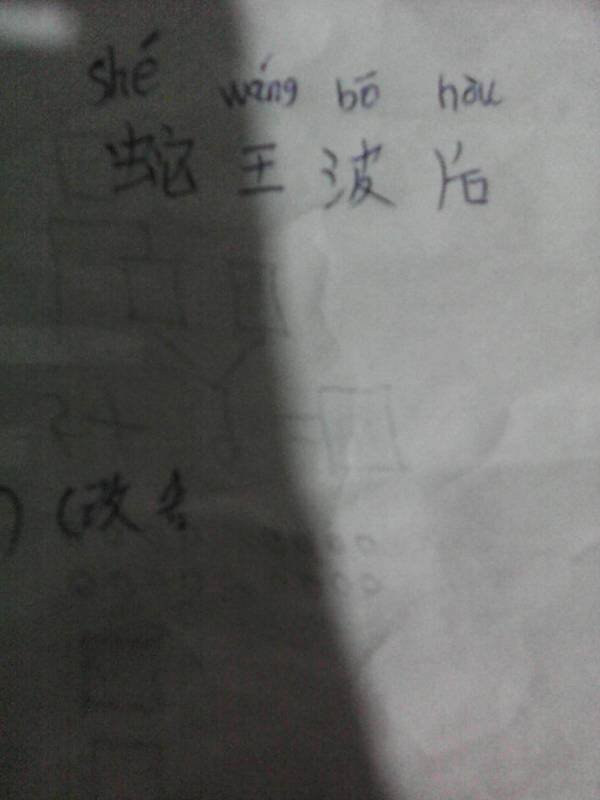 shé wáng bō hòu
蛇王波后
(改